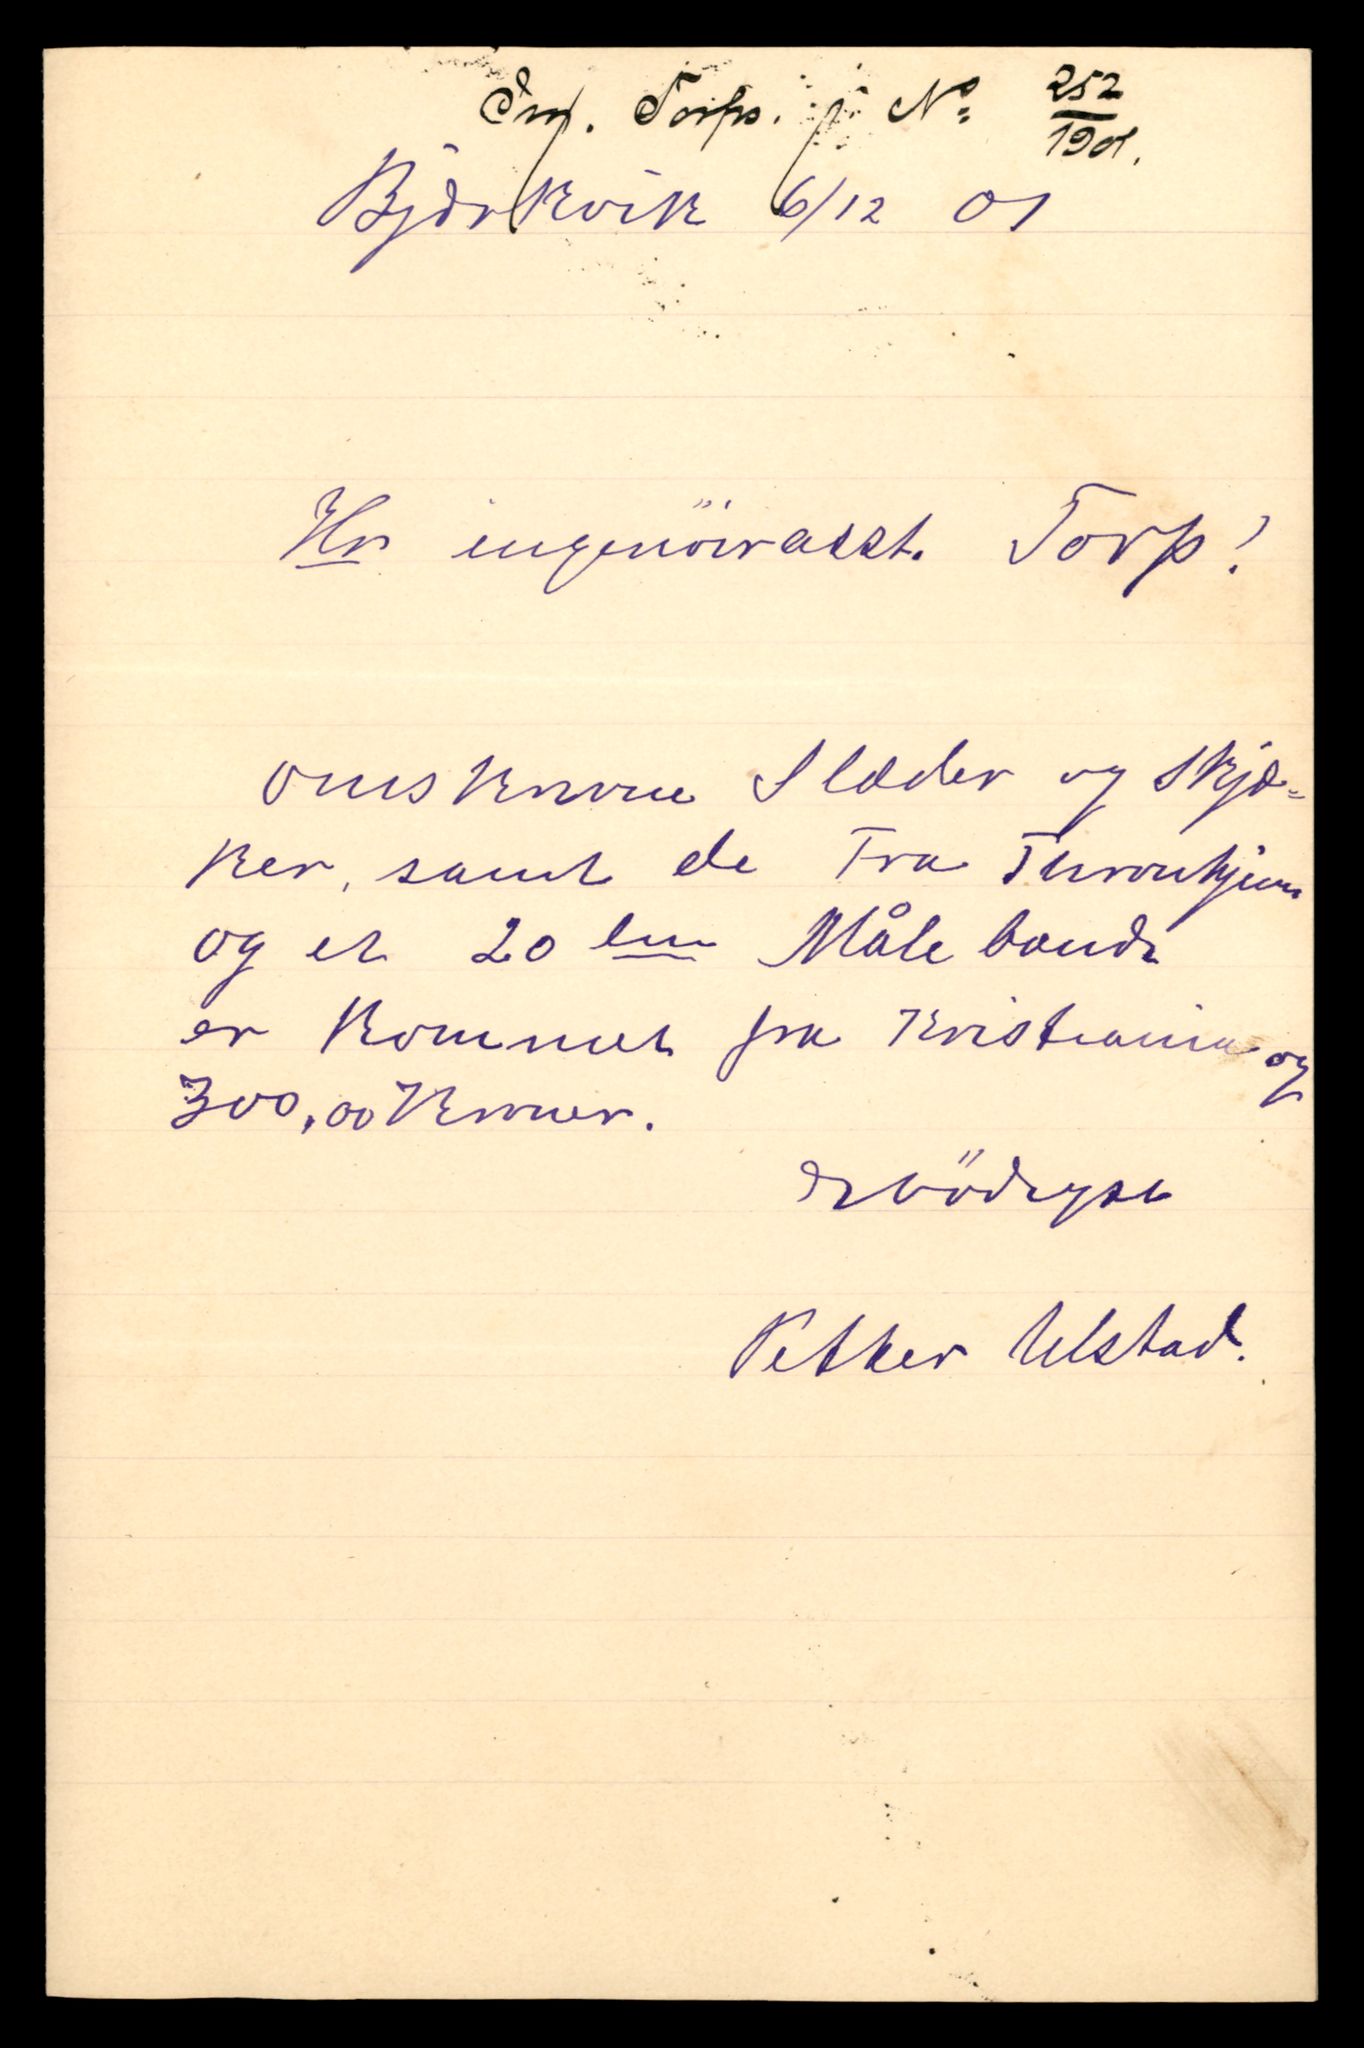 Ing. Torps. j No. 252/1901.
Bjørkvik 6/12 01
Hr ingenöirasst. Torp!
omskrevne Slæder og skjæ-
ker, samt de fra Thronhjem
og et 20 lm Målebaand
er kommet fra Kristiania og
300,00 Kroner.
ærbödigst
Petter Ulstad.